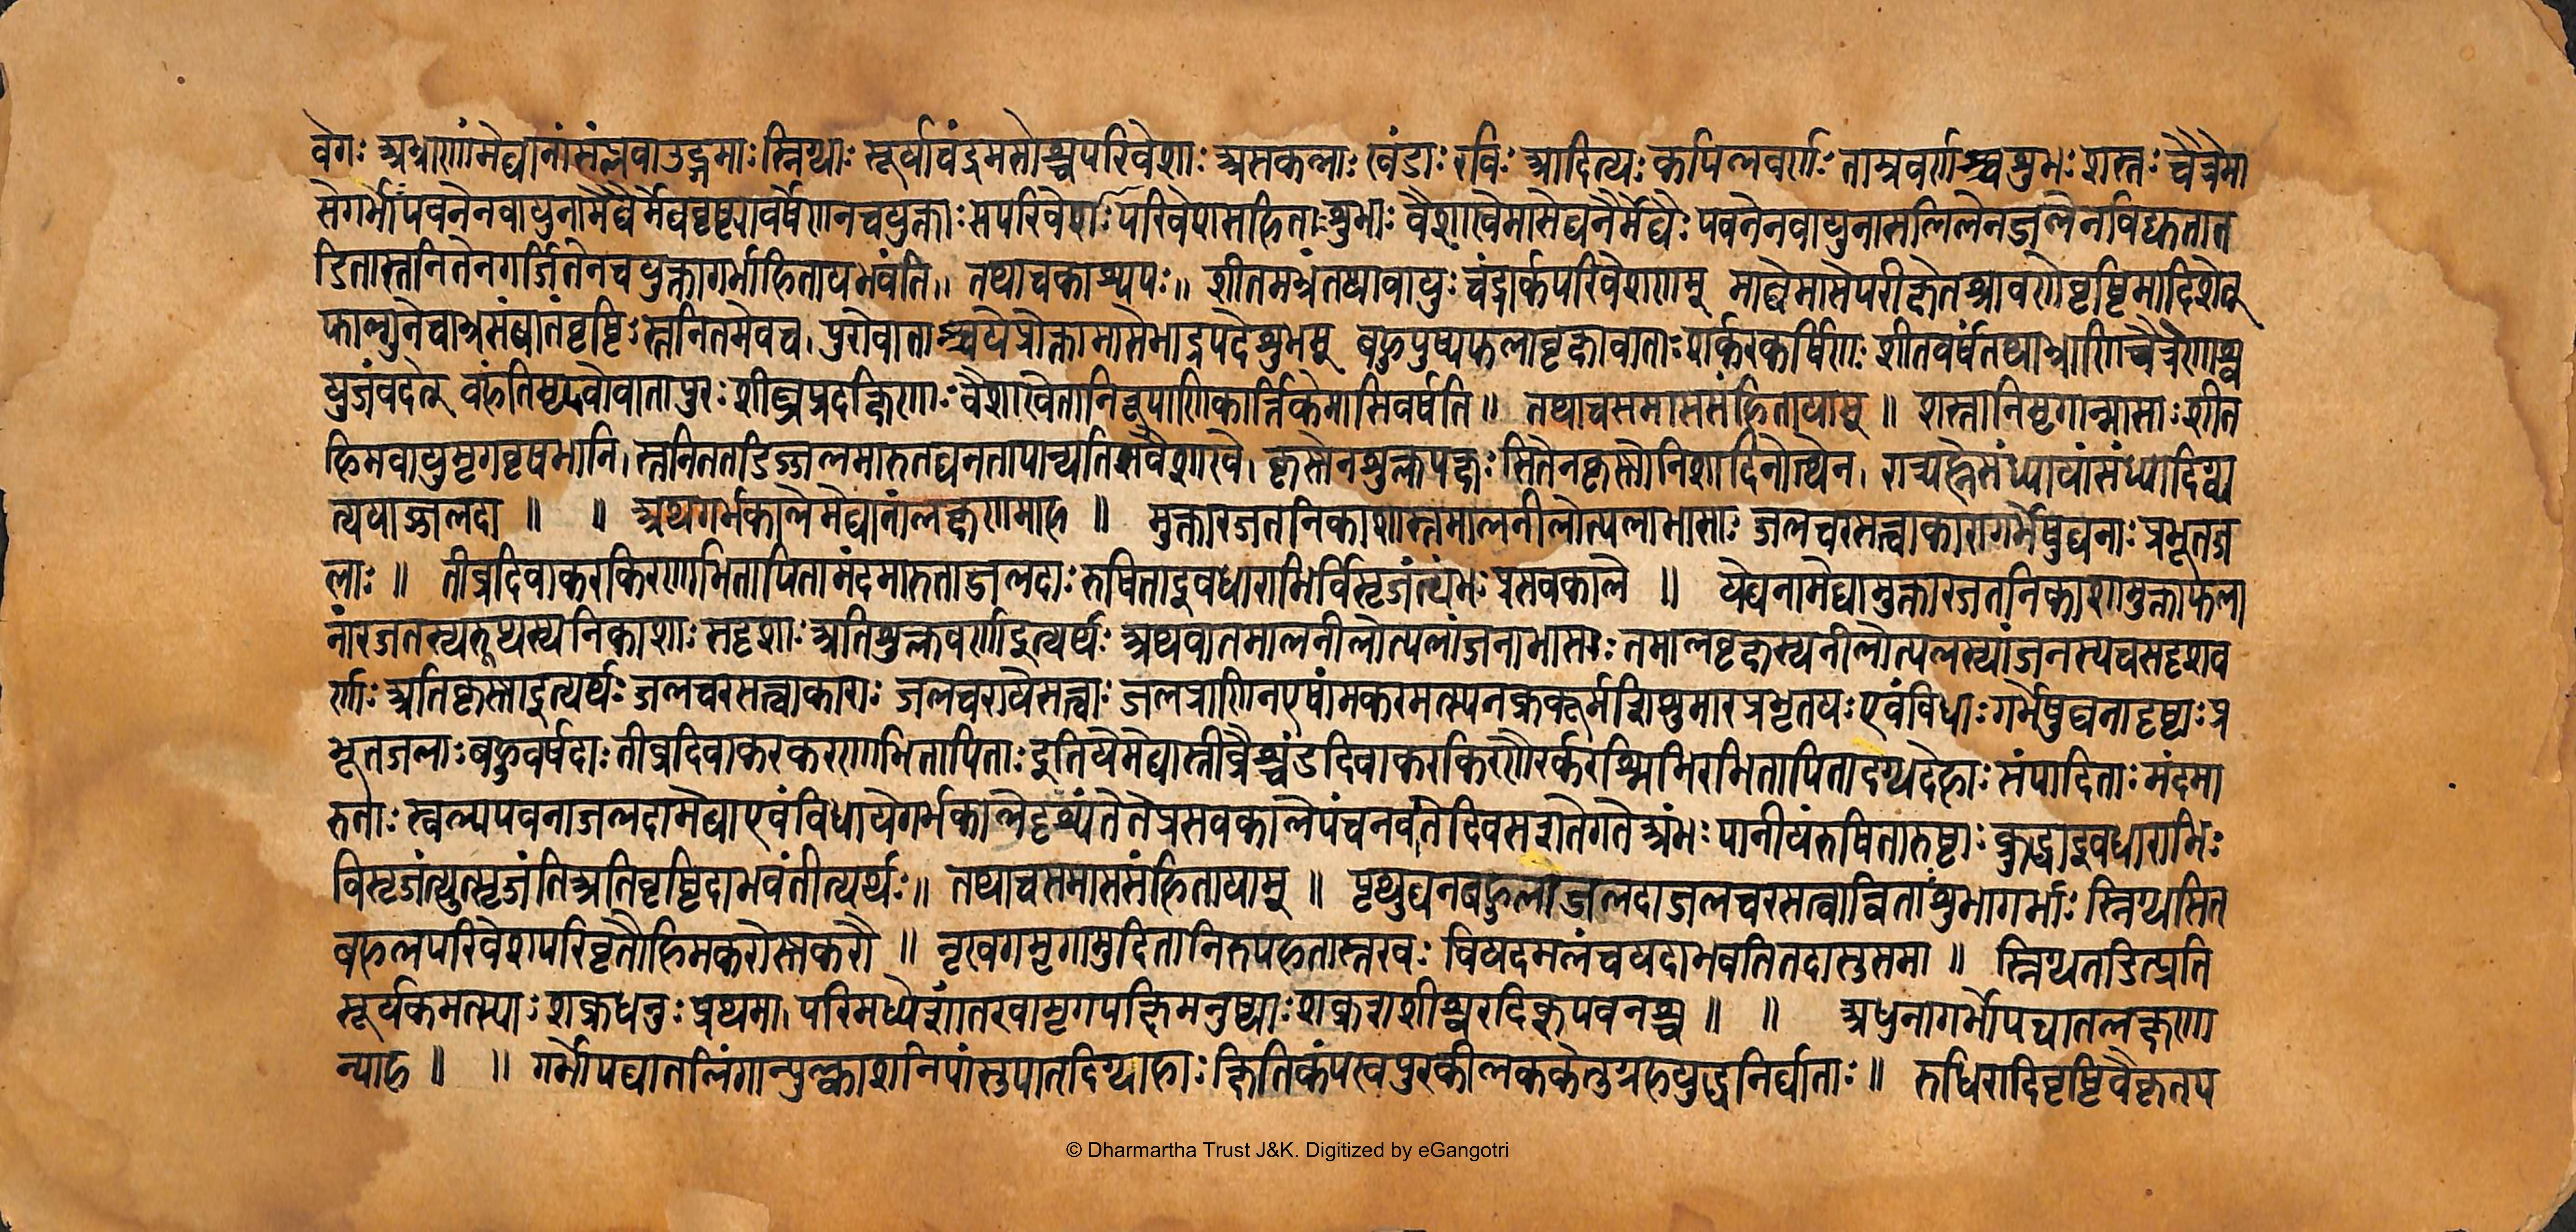 वेगः अभ्राणांमेघानांसंप्लवाउद्गमाः स्निग्धाः सूर्याचंद्रमसोश्चपरिवेशाः असकलाः खंडाः रविः आदित्यः कपिलवर्णः ताम्रवर्णश्चशुभः शस्तः चैत्रेमा
सेगर्भाःपवनेनवायुनामेघैर्मेघवृष्ट्यावर्षेणनचयुक्ताःसपरिवेशाःपरिवेशसहिताःशुभाः वैशाखेमासेघनैर्मेघैः पवनेनवायुनासलिलेनजलेनविद्युतात
डितास्तनितेनगर्जितेनचयुक्तागर्भाहितायभवंति॥ तथाचकाश्यपः॥ शीतमभ्रंतथावायुःचंद्रार्कपरिवेशणम् माघेमासेपरीक्षेतश्रावणेवृष्टिमादिशेत्
फाल्गुनेचाभ्रसंघातंवृष्टिःस्तनितमेवच।पुरोवाताश्चयेप्रोक्तामासेभाद्रपदेशुभम् बहुपुष्पफलावृक्षावाताःशर्करकर्षिणः शीतवर्षंतथाभ्राणिचैत्रेणाश्व
युजंवदेत् वहंतिमृदवोवातापुरःशीघ्रप्रदक्षिणाः वैशाखेतानिरूपाणिकार्त्तिकेमासिवर्षति॥ तथाचसमाससंहितायाम्॥ शस्तानिमृगान्मासाःशीत
हिमवायुमृगवृषभानि।स्तनिततडिज्जलमारुतघनतापान्यतिशवैशाखे। कृस्नेनशुक्लपक्षःसितेनकृस्नोनिशादिनोत्थेन। रात्र्यह्नैसंध्यायांसंध्यादिग्व्य
त्ययाज्जलदा॥ ॥ अथगर्भकालेमेघानांलक्षणमाह॥ मुक्तारजतनिकाशास्तमालनीलोत्पलाभासाः जलचरसत्त्वाकारागर्भेषुघनाःप्रभूतज
लाः॥ तीव्रदिवाकरकिरणाभितापितामंदमारुताजलदाःरुषिताइवधाराभिर्विसृजंत्यंभःप्रसवकाले॥ येघनामेघामुक्तारजतनिकाशामुक्ताफला
नांरजतस्यरूप्यस्यनिकाशाःसदृशाःअतिशुक्लवर्णाइत्यर्थः अथवातमालनीलोत्पलांजनाभासाःतमालवृक्षस्यनीलोत्पलस्यांजनस्यचसदृशव
र्णाः अतिकृस्नाइत्यर्थः जलचरसत्त्वाकाराः जलचरायेसत्त्वाः जलप्राणिनएषांमकरमत्स्यनक्रकूर्मशिशुमारप्रभृतयःएवंविधाःगर्भेषुघनादृष्टाःप्र
भूतजलाःबहुवर्षदाःतीव्रदिवाकरकरणाभितापिताःइतियेमेघास्तीव्रैश्चंडदिवाकरकिरणैरर्करश्मिभिरभितापितादग्धदेहाःसंपादिताःमंदमा
रुताः स्वल्पपवनाजलदामेघाएवंविधायेगर्भकालेदृश्यंतेतेप्रसवकालेपंचनवतेदिवसशतेगतेअंभःपानीयंरुषितारुष्टाःक्रुद्धाइवधाराभिः
विसृजंत्युत्सृजंतिअतिवृष्टिदाभवंतीत्यर्थः॥ तथाचसमाससंहितायाम्॥ पृथुघनबहुलाजलदाजलचरसत्वान्विताशुभागर्भाः स्निग्धसित
बहलपरिवेशपरिवृतौहिमकरोस्नकरौ॥ नृखगमृगामुदितानिरुपहतास्तरवः वियदमलंचयदाभवतितदासुसमा॥ स्निग्धतडित्प्रति
सूर्यकमत्स्याः शक्रधनुःप्रथमा।परिमध्येशांतरवामृगपक्षिमनुष्याःशक्रशशीश्वरदिक्षुपवनश्च॥ ॥ अधुनागर्भोपघातलक्षणा
न्याह॥ ॥ गर्भोपघातलिंगान्युल्काशनिपांसुपातदिग्दाहाःक्षितिकंपखपुरकीलककेतुग्रहयुद्धनिर्घाताः॥ रुधिरादिवृष्टिवैकृतप
© Dharmartha Trust J&K. Digitized by eGangotri